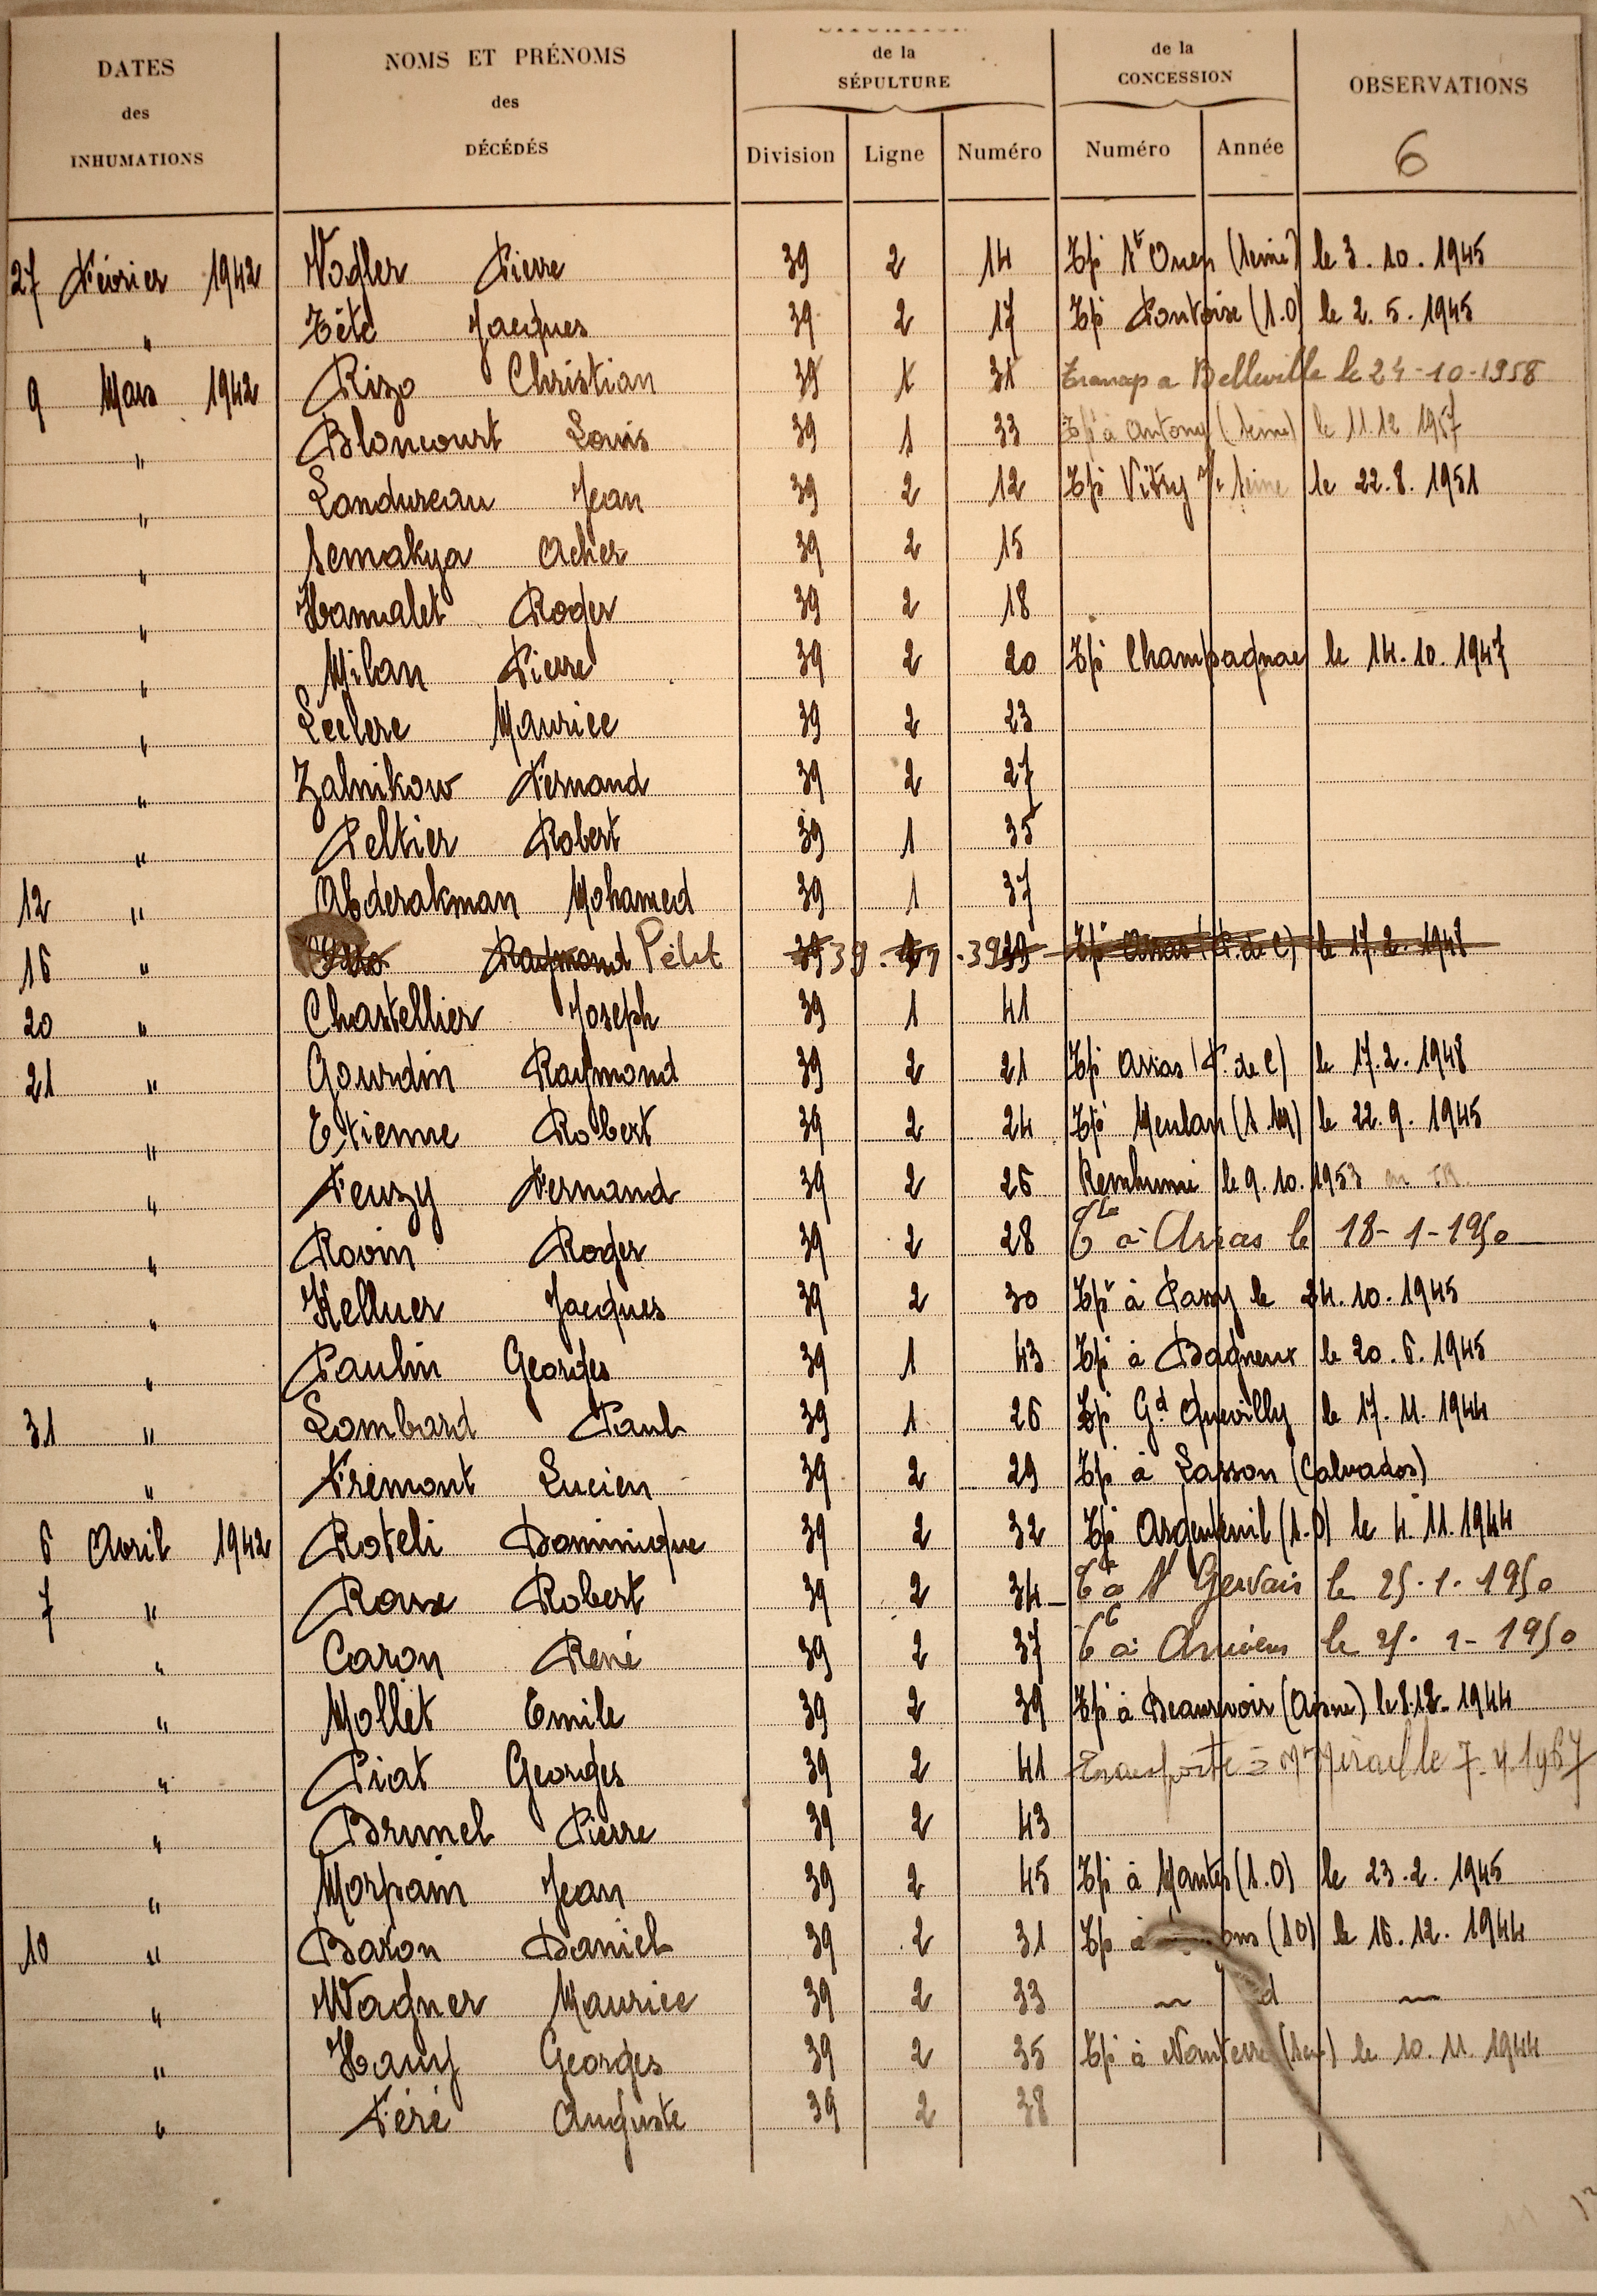 DATES des INHUMATIONS
NOMS ET PRÉNOMS des DÉCÉDÉS
de la SÉPULTURE
de la CONCESSION
OBSERVATIONS
6
Division Ligne Numéro Numéro Année
27 Février 1942 Vogler Pierre 39 2 14 Tpé St Ouen (Seine) le 3.10.1945
" Tété Jacques 39 2 17 Tpé Pontoise (S.O) le 2.5.1945
9 Mars 1942 Rizo Christian 39 1 31 Transp a Belleville le 24-10-1958
" Bloncourt Louis 39 1 33 Tpé à Antony (Seine) le 11.12 1957
" Landureau Jean 39 2 12 Tpé Vitry s/ Seine le 22.8.1951
" Semahya Acher 39 2 15
" Hamalet Roger 39 2 18
" Milan Pierre 39 2 20 Tpé Champagnac le 14.10.1947
" Leclerc Maurice 39 2 23
" Zalnikow Fernand 39 2 27
" Peltier Robert 39 1 35
12 " Abderakman Mohamed 39 1 37
16 " Raymond Pélet 39 39 1 39 39 Tpé Arras (P. de C) le 17.2.1948
20 " Chastellier Joseph 39 1 41
21 " Gourdin Raymond 39 2 21 Tpé Arras (P. de C) le 17.2.1948
" Etienne Robert 39 2 24 Tpé Meulan (S.M) le 22.9.1945
" Feuzy Fernand 39 2 26 Remhumé le 9.10.1953 en
" Rovin Roger 39 2 28 à Arras le 18-1-1950
" Kellner Jacques 39 2 30 Tpé à Passy le 24.10.1945
" Paulin Georges 39 1 43 Tpé à Bagneux le 20.6.1945
31 " Lombard Paul 39 1 26 Tpé Gd Quevilly le 17.11.1944
" Frémont Lucien 39 2 29 Tpé à Lasson (Calvados)
6 Avril 1942 Roteli Dominique 39 2 32 Tpé Argenteuil (S.O) le 4.11.1944
7 " Roux Robert 39 2 34 Té à St Gervais le 25.1.1950
" Caron René 39 2 37 Té à Amiens le 25.1-1950
" Mollet Emile 39 2 39 Tpé à Beaurevoir (Aisne) le 8.12.1944
" Piat Georges 39 2 41 Transporté à Mt le 7.4.1967
" Brunel Pierre 39 2 43
" Morpain Jean 39 2 45 Tpé à Mantes (S.O) le 23.2.1945
10 " Baron Daniel 39 2 31 Tpé à (S O) le 16.12.1944
" Wagner Maurice 39 2 33 — d —
" Hauy Georges 39 2 35 Tpé à Nanterre (Sne) le 10.11.1944
" Féré Auguste 39 2 38